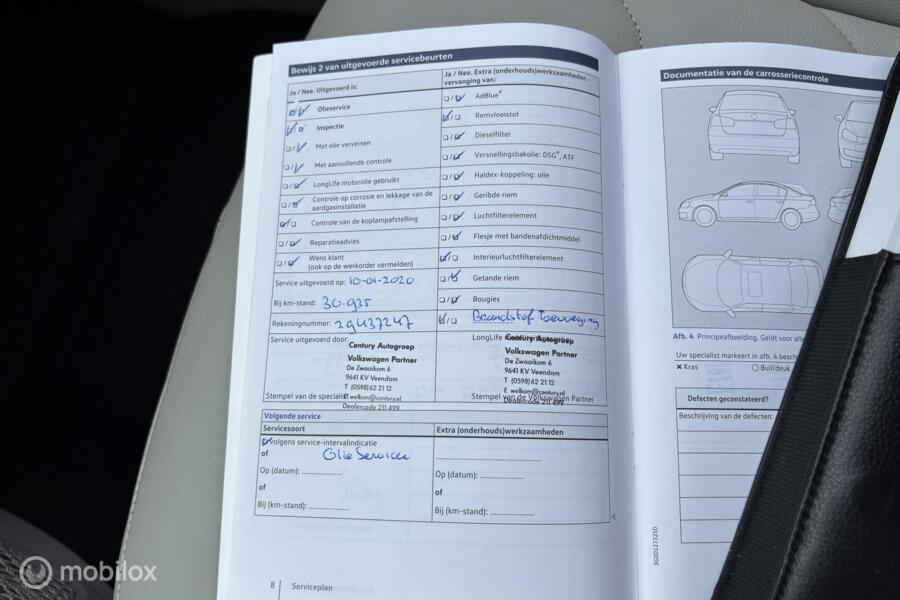 Bewijs 2 van uitgevoerde servicebeurten
Ja / Nee. Uitgevoerd is:
Olieservice
Inspectie
Met olie verversen
Met aanvullende controle
LongLife motorolie gebruikt
Controle op corrosie en lekkage van de
aardgasinstallatie
Controle van de koplampafstelling
Reparatieadvies
Wens klant
(ook op de werkorder vermelden)
Service uitgevoerd op: 10-01-2020
Bij km-stand: 30.935
Rekeningnummer: 29437247
Service uitgevoerd door:
Century Autogroep
Volkswagen Partner
De Zwaaikom 6
9641 KV Veendam
T (0598) 62 21 12
E welkom@century.nl
Dealercode 211 499
Stempel van de specialist
Ja / Nee. Extra (onderhouds)werkzaamheden -
vervanging van:
AdBlue®
Remvloeistof
Dieselfilter
Versnellingsbakolie: DSG®, ATF
Haldex-koppeling: olie
Geribde riem
Luchtfilterelement
Flesje met bandenafdichtmiddel
Interieurluchtfilterelement
Getande riem
Bougies
Brandstof Toevoeging
LongLife
Century Autogroep
Volkswagen Partner
De Zwaaikom 6
9641 KV Veendam
T (0598) 62 21 12
E welkom@century.nl
Dealercode 211 499
Stempel van de Volkswagen Partner
Volgende service
Servicesoort
Extra (onderhouds)werkzaamheden
volgens service-intervalindicatie
of
Olie Service
Op (datum): ..................
of
Bij (km-stand): ..................
Op (datum): ..................
of
Bij (km-stand): ..................
8 Serviceplan
Documentatie van de carrosseriecontrole
Afb. 4 Principeafbeelding. Geldt voor alle
Uw specialist markeert in afb. 4 besch
Kras
Buil/deuk
Defecten geconstateerd?
Beschrijving van de defecten:
3G0012732SD
mobilox